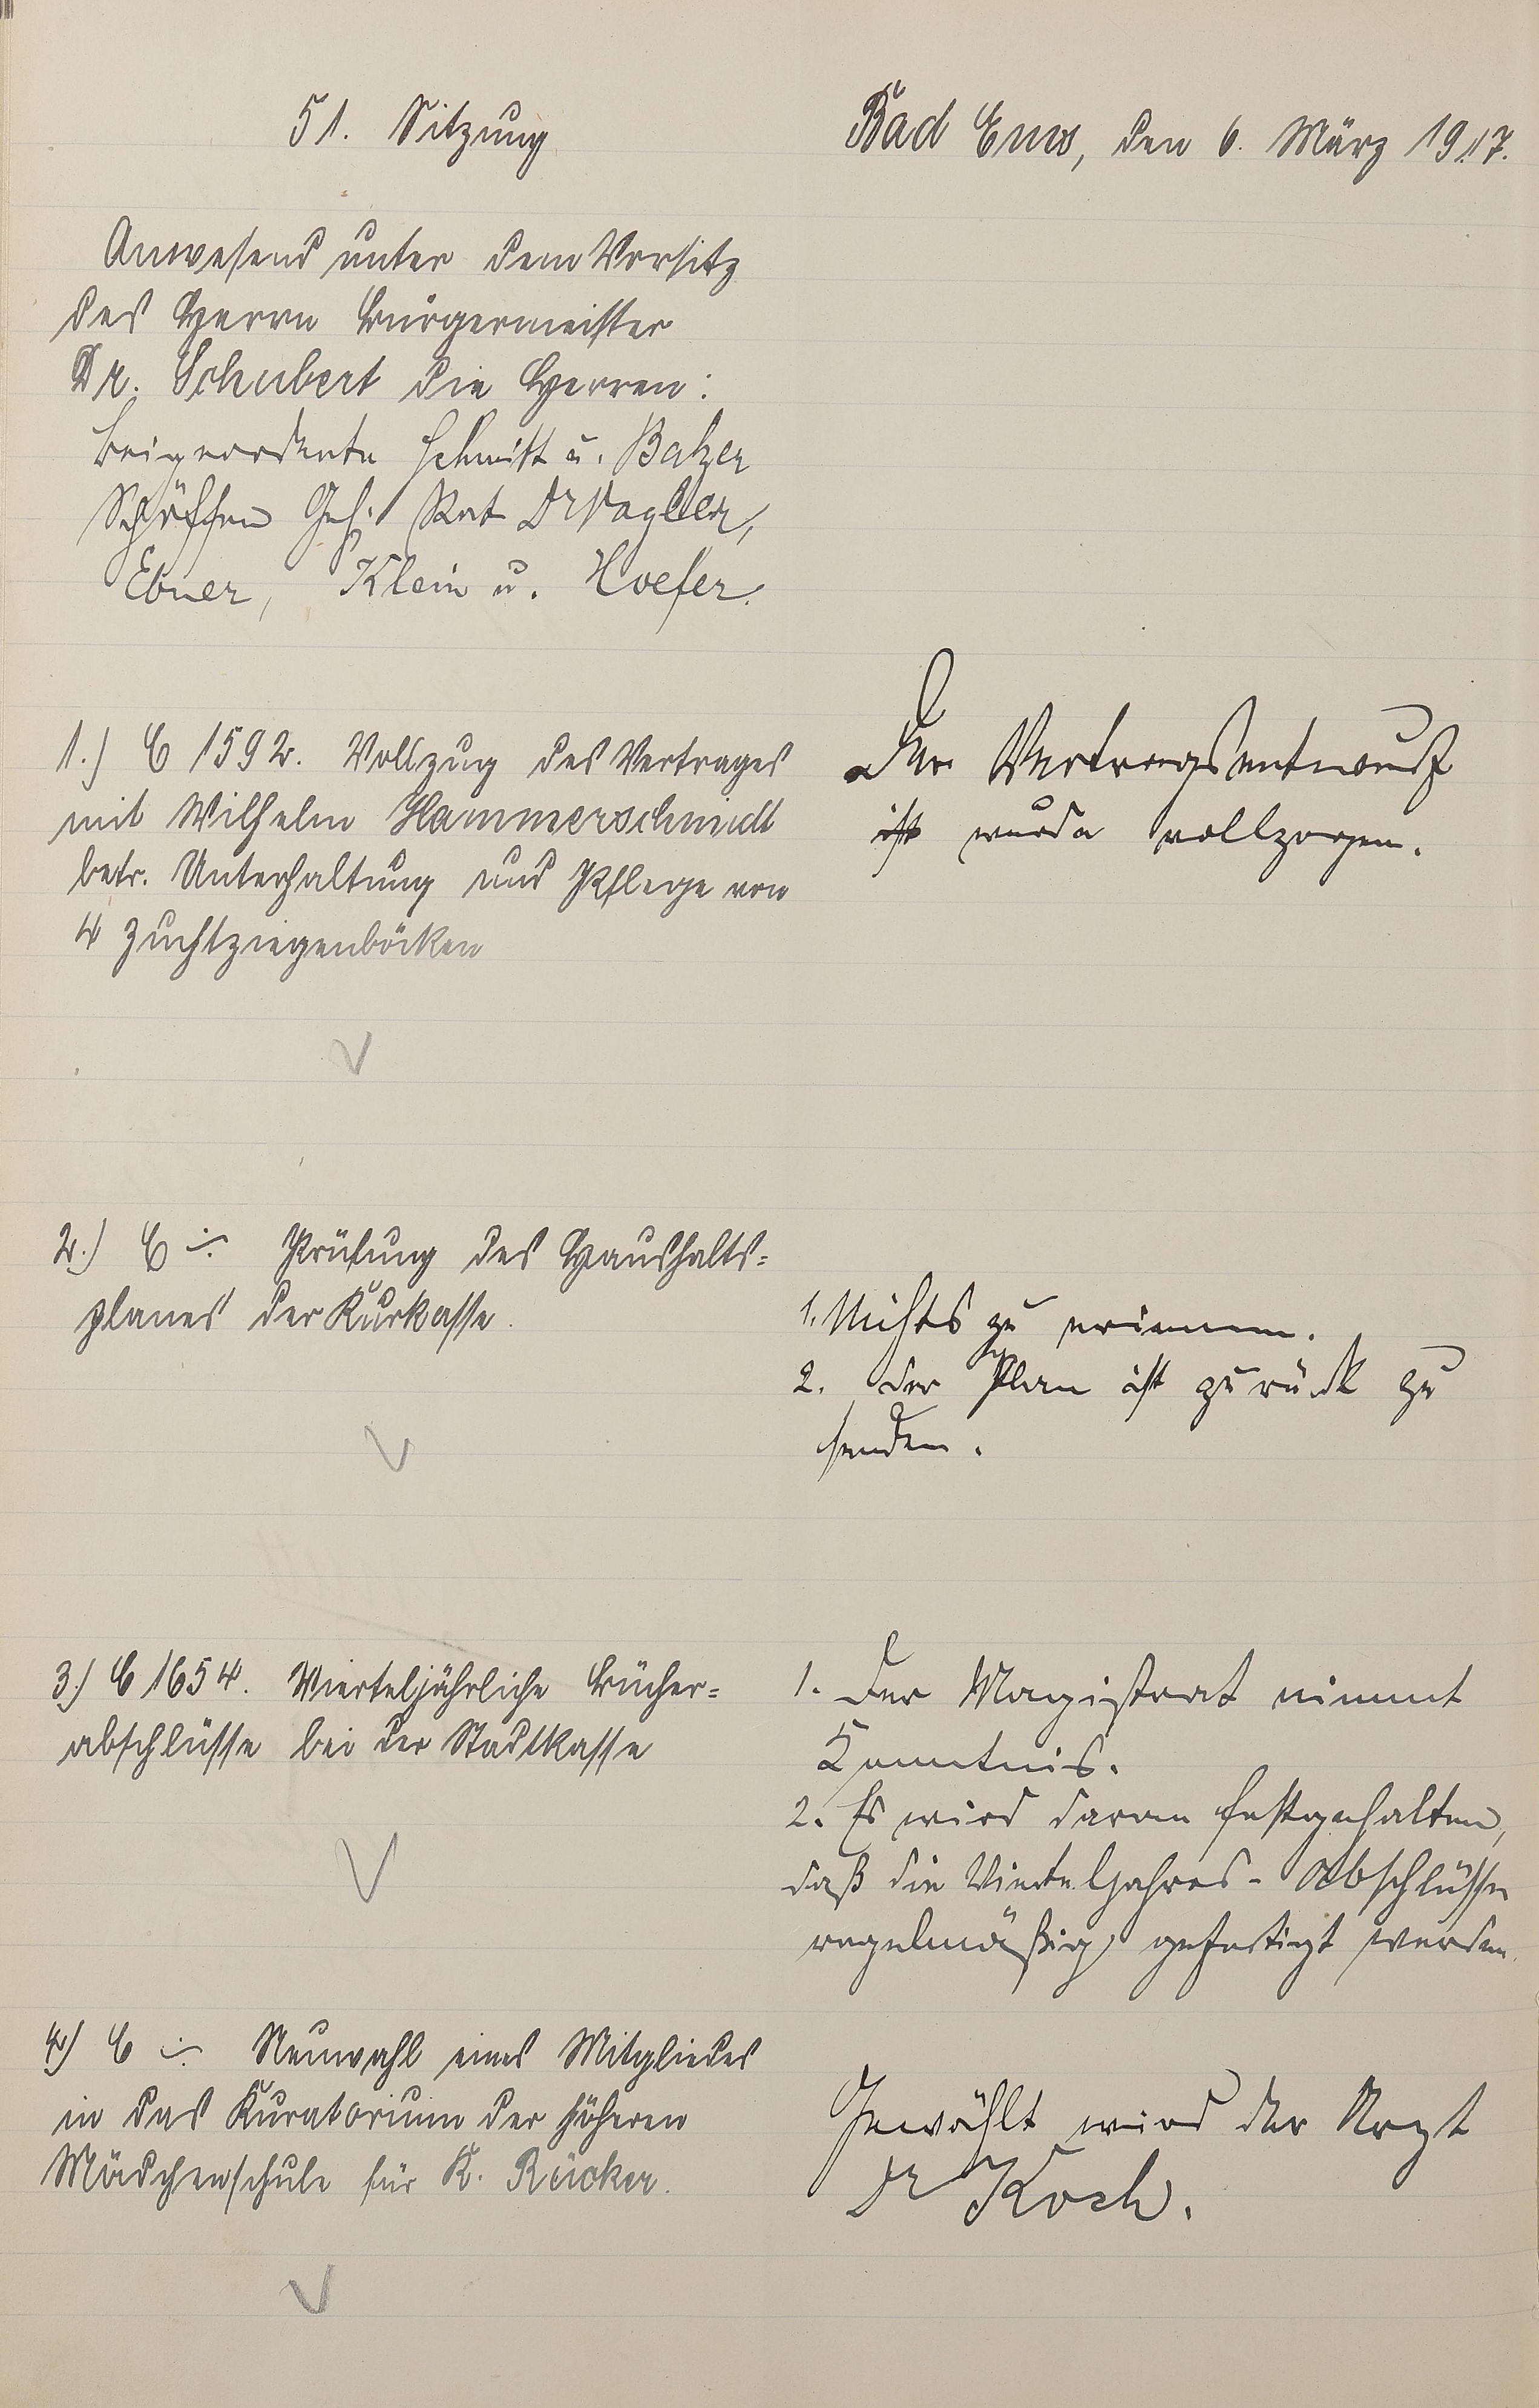 51. Sitzung
Bad Ems, den 6. März 1917.
Anwesend unter dem Vorsitz
des Herrn Bürgermeister
Dr. Schubert die Herren:
Beigeordente Schmitt u. Balzer
Schöffen Geh. Rat Dr Vogler,
Ebner, Klein u. Hoefer.
1.) C 1592. Vollzug des Vertrages
mit Wilhelm Hammerschmidt
betr. Unterhaltung und Pflege von
4 Zuchtziegenböcken
Der Vertragsentwurf
ist wurde vollzogen.
2.) C ÷ Prüfung des Haushalts=
planes der Kurkasse.
1. Nichts zu erinnern.
2. Der Plan ist zurück zu
senden.
3.) C 1654. Vierteljährliche Bücher=
abschlüsse bei der Stadtkasse
1. Der Magistrat nimmt
Kenntnis.
2. Es wird daran festgehalten,
daß die Vierteljahres-Abschlüsse
regelmäßig gefertigt werden.
4.) C ÷ Neuwahl eines Mitgliedes
in das Kuratorium der höheren
Mädchenschule für K. Rücker.
Gewählt wird der Arzt
Dr Koch.